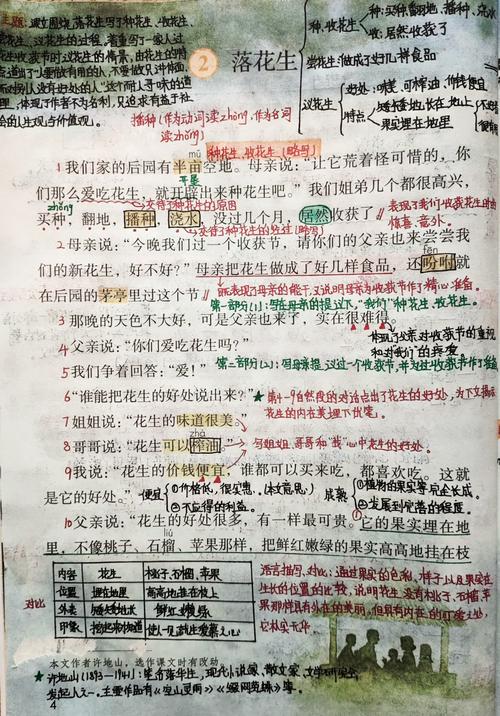 主题:课文围绕落花生写了种花生、收花生、
尝花生、议花生的过程,着重写了一家人过
花生收获节时议花生的情景,由花生的特
点道出了人要做有用的人,不要做只讲体面,
而对别人没有好处的人
理,体现了作者不为名利,只追求有益于社
会的人生观与价值观。
2 落花生
种、收花生
种:买种翻地、播种、浇水
收:居然收获了
尝花生:做成了好几样食品
议花生
好处:味美、可榨油、价钱便宜
特点
矮矮地长在地上
果实埋在地里
播种(作为动词读zhòng,作为名词
读zhǒng)
种花生、收花生(略写)
mǔ
1 我们家的后园有半亩空地。母亲说:“让它荒着怪可惜的,你
们那么爱吃花生,就开辟出来种花生吧。”我们姐弟几个都很高兴,
zhǒng
交待了种花生的原因
买种,翻地,播种,浇水,没过几个月,居然收获了。
表现了我们收获花生时的
惊喜、意外。
2 母亲说:“今晚我们过一个收获节,请你们的父亲也来尝尝我
们的新花生,好不好?”母亲把花生做成了好几样食品,还吩咐就
fēn
在后园的茅亭里过这个节。
第一部分(1):写在母亲的提议下,“我们”种花生、收花生。
3 那晚的天色不大好,可是父亲也来了,实在很难得。
体现了父亲对收获节的重视
和对我们的疼爱。
4 父亲说:“你们爱吃花生吗?”
5 我们争着回答:“爱!”
6 “谁能把花生的好处说出来?”
★第4-9自然段的对话说出了花生的好处,为下文揭示
花生的内在美埋下伏笔。
7 姐姐说:“花生的味道很美。”
zhà
8 哥哥说:“花生可以榨油。”
写姐姐、哥哥和“我”心中花生的好处。
9 我说:“花生的价钱便宜,谁都可以买来吃,都喜欢吃。这就
是它的好处。”
便宜
①价格低,很实惠。(本文意思)
②不应得的利益。
成熟
①植物的果实等完全长成。
②发展到完善的程度。
10 父亲说:“花生的好处很多,有一样最可贵:它的果实埋在地
liú
里,不像桃子、石榴、苹果那样,把鲜红嫩绿的果实高高地挂在枝
对比
内容 花生 桃子、石榴、苹果
位置 埋在地里 高高地挂在枝上
外表 矮矮地长 鲜红嫩绿
印象 挖起来才知道 使人一见就生爱慕之心
语言描写、对比:通过果实的色彩、样子以及果实在
生长的位置的比较,说明花生没有桃子、石榴、苹
果那样具有外在的美丽,但具有内在的可贵之处,
它朴实无华
本文作者许地山,选作课文时有改动。
★许地山(1893-1941):笔名落华生,现代小说家、散文家,文学研究会
发起人之一。主要作品有《空山灵雨》《缀网劳蛛》等。
4